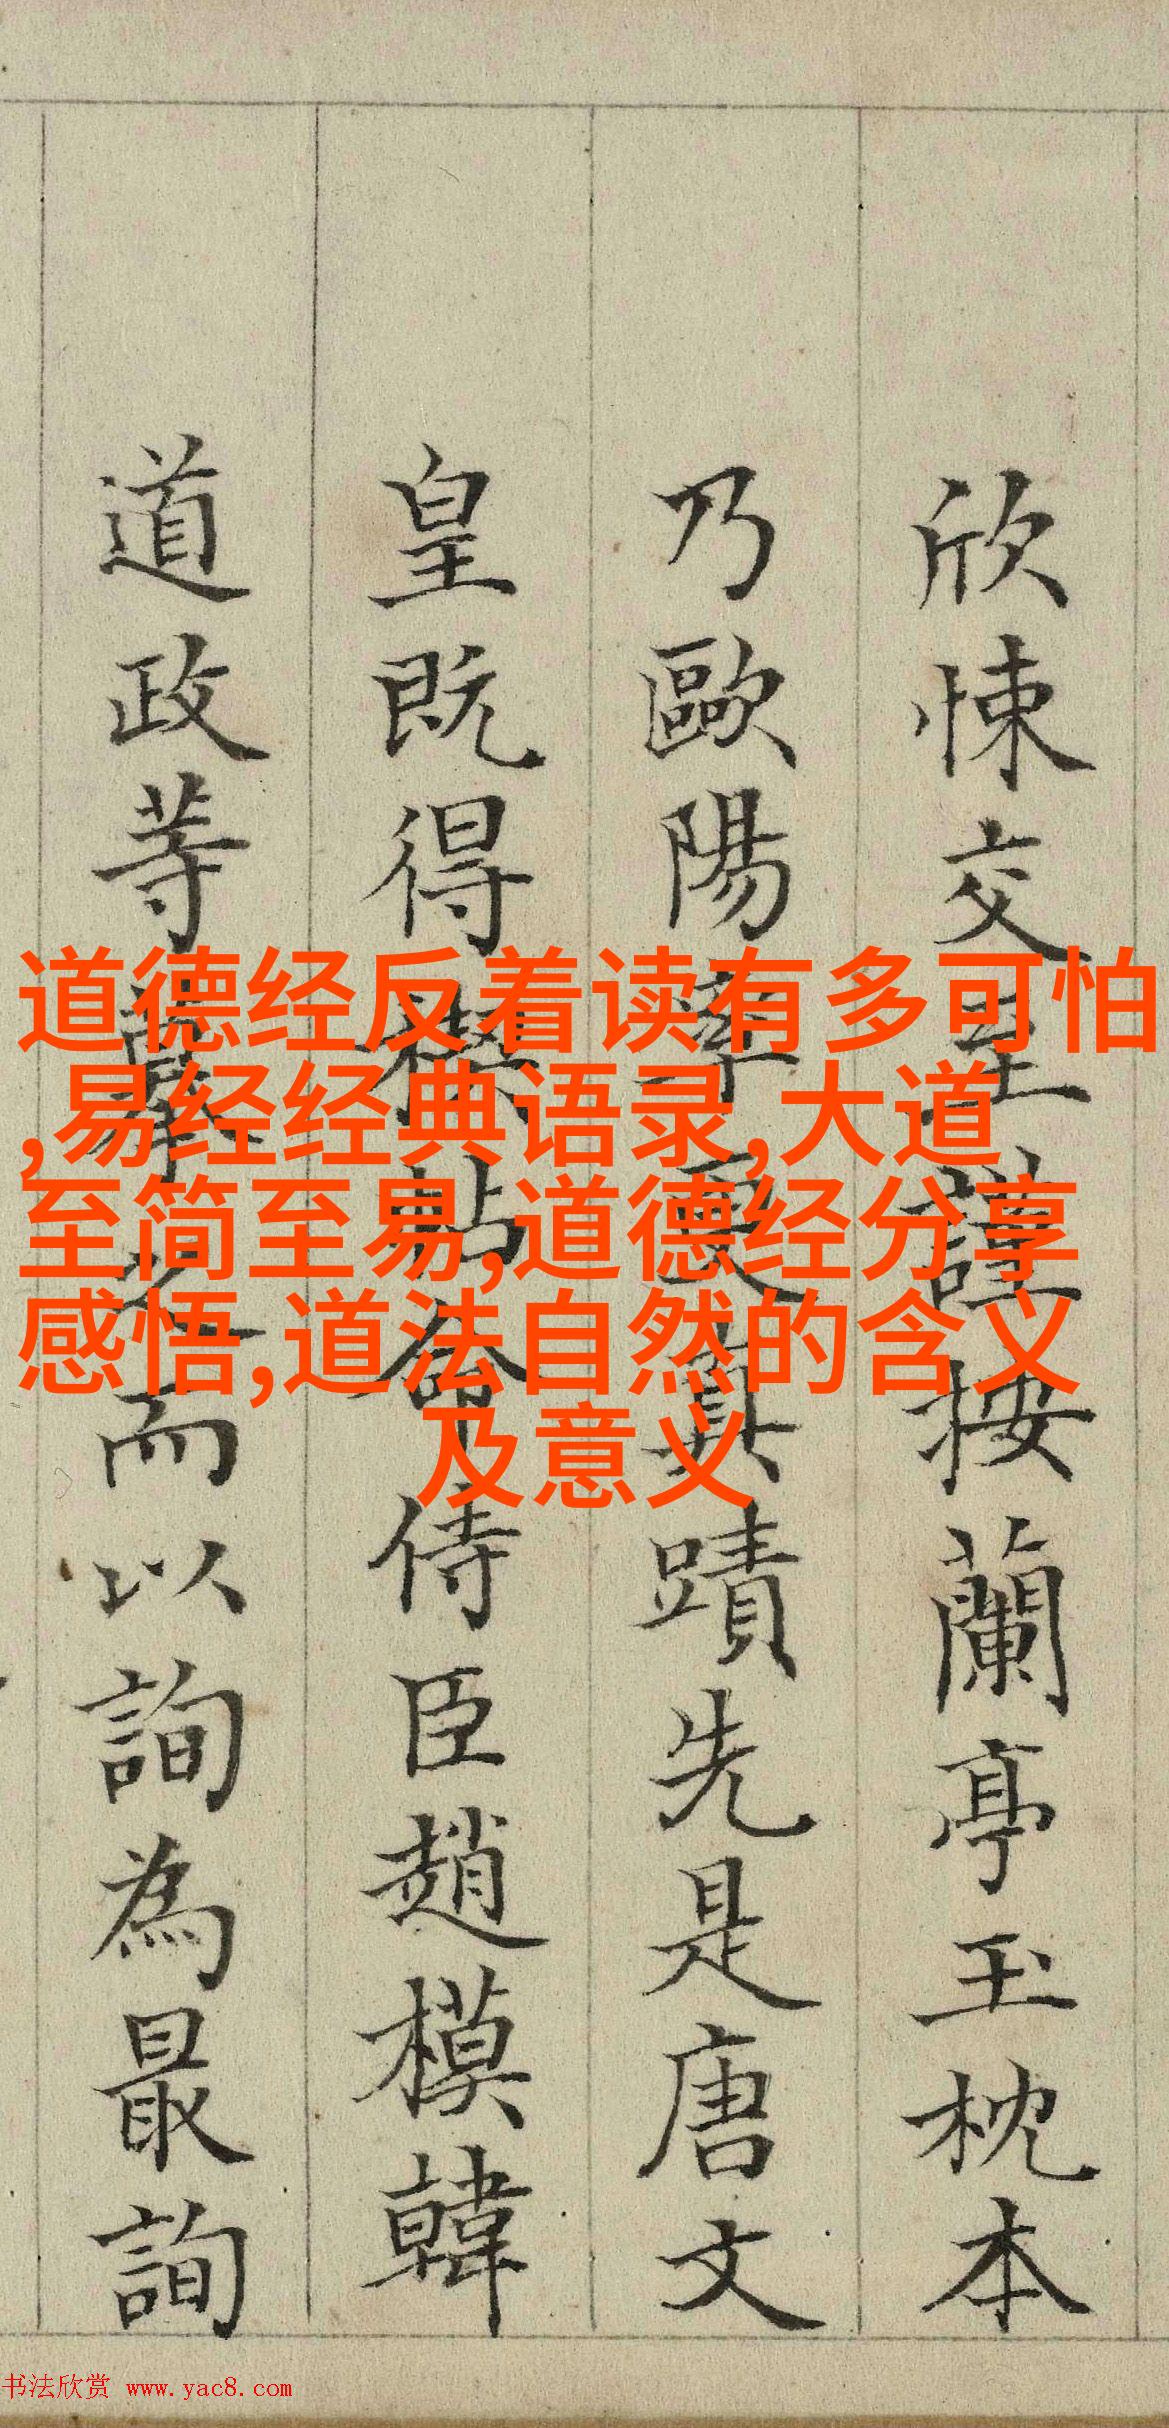 欣悚交至謹按蘭亭玉枕本
乃歐陽率更真蹟先是唐文
皇既得禊帖命侍臣趙模韓
道政等而以詢為最詢
道德经反着读有多可怕
,易经经典语录,大道
至简至易,道德经分享
感悟,道法自然的含义
及意义
书法欣赏 www.yac8.com